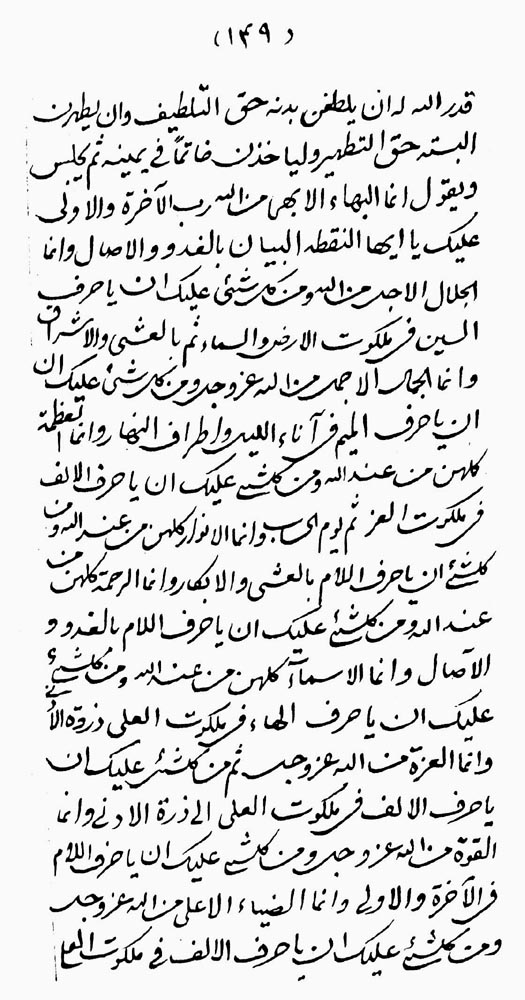 (۱۴۹)
قدر الله له ان يلطفن بدنه حق التلطيف وان يطهرن
البسته حق التطهير وليا خذن خاتماً في يمينه ثم يجلس
ويقول انما البهاء الابهى من الله رب الآخرة والاولى
عليك يا ايها النقطه البيان بالغدو والاصال وانما
الجلال الاجل من الله ومن كل شئ عليك ان يا حرف
السين في ملكوت الارض والسماء ثم بالعشى والاشراق
وانما الجمال الاجمل من الله عز وجل ومن كل شئ عليك ان
ان يا حرف الميم في آناء الليل واطراف النهار وانما العظمة
كلهن من عند الله ومن كلشئ عليك ان يا حرف الالف
في ملكوت العز ثم يوم الحساب وانما الانوار كلهن من عند الله ومن
كلشئ ان يا حرف اللام بالعشى والابكار وانما الرحمة كلهن من
عند الله ومن كلشئ عليك ان يا حرف اللام بالغدو و
الآصال وانما الاسماء كلهن من عند الله ومن كلشئ
عليك ان يا حرف الهاء في ملكوت العلى ذروة
وانما العزة من الله عز وجل ثم من كلشئ عليك ان
يا حرف الالف في ملكوت العلى الى ذرة الادنى وانما
القوة من الله عز وجل ومن كلشئ عليك ان يا حرف اللام
في الآخرة والاولى وانما الضياء الاعلى من الله عز وجل
ومن كلشئ عليك ان يا حرف الالف في ملكوت العلى